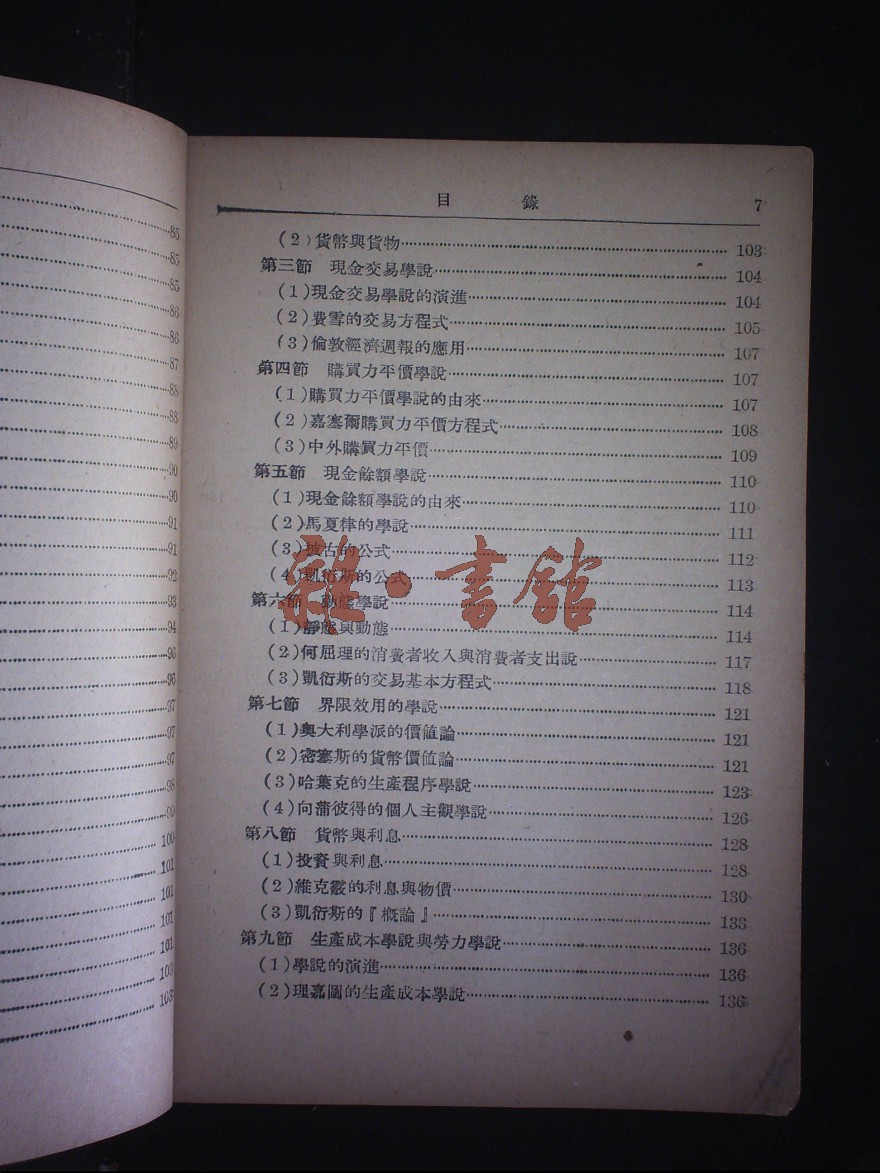 85
85
85
86
86
87
88
88
89
90
90
91
91
92
93
94
96
96
97
97
97
98
99
100
101
101
101
101
103
103
目錄 7
(2)貨幣與貨物 103
第三節 現金交易學說 104
(1)現金交易學說的演進 104
(2)費雪的交易方程式 105
(3)倫敦經濟週報的應用 107
第四節 購買力平價學說 107
(1)購買力平價學說的由來 107
(2)嘉塞爾購買力平價方程式 108
(3)中外購買力平價 109
第五節 現金餘額學說 110
(1)現金餘額學說的由來 110
(2)馬夏律的學說 111
(3)披古的公式 112
(4)凱衍斯的公式 113
第六節 動態學說 114
(1)靜態與動態 114
(2)何屈理的消費者收入與消費者支出說 117
(3)凱衍斯的交易基本方程式 118
第七節 界限效用的學說 121
(1)奧大利學派的價值論 121
(2)密塞斯的貨幣價值論 121
(3)哈葉克的生產程序學說 123
(4)向蒲彼得的個人主觀學說 126
第八節 貨幣與利息 128
(1)投資與利息 128
(2)維克霰的利息與物價 130
(3)凱衍斯的『概論』 133
第九節 生產成本學說與勞力學說 136
(1)學說的演進 136
(2)理嘉圖的生產成本學說 136
雜·書館